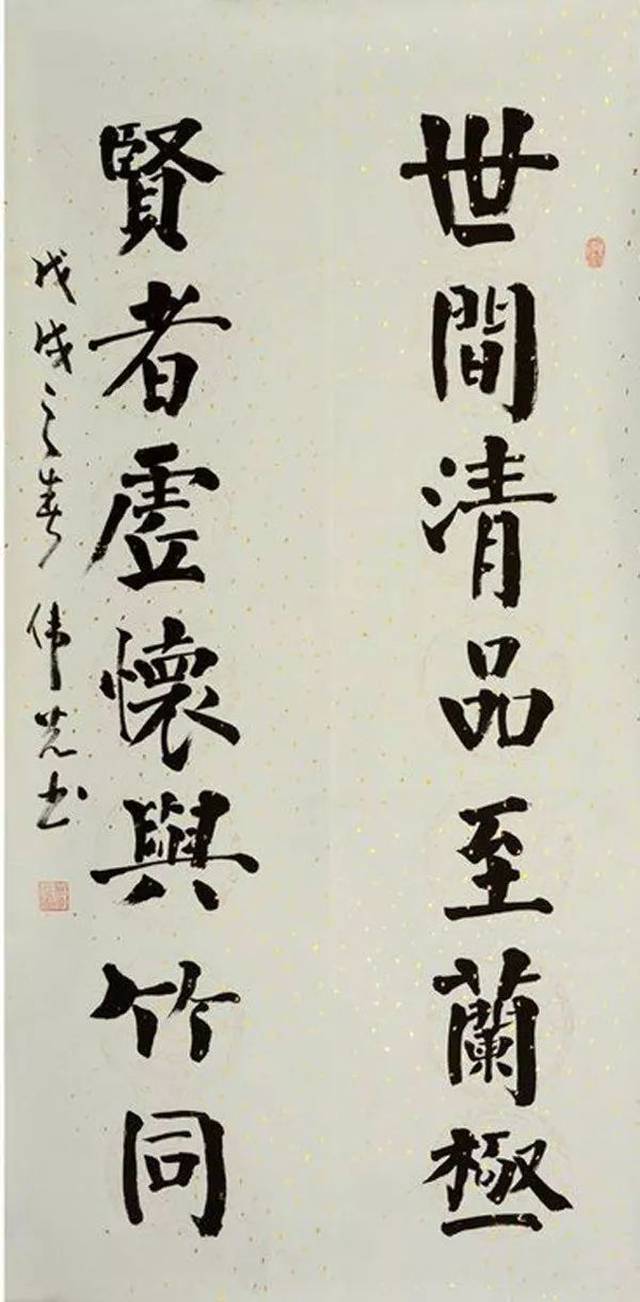 世間清品至蘭極
賢者虛懷與竹同
戊戌之春伟芝书